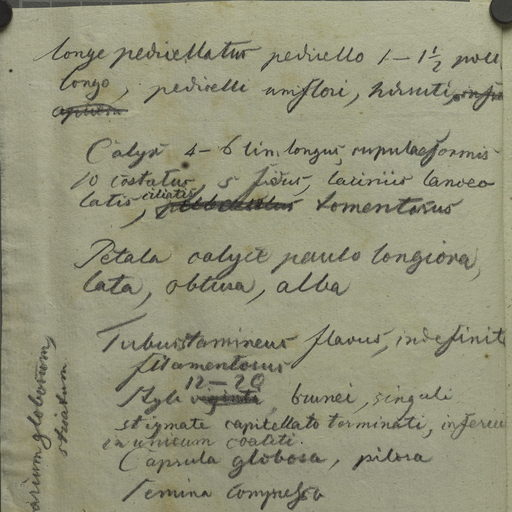 longe pedicellatus pedicello 1 – 1½ poll
longo, pedicelli uniflori, hirsuti,
Calyx 4 – 6 lin. longus, cupulaeformis
10 costatus, 5 fidus, laciniis lanceo
latis ciliatis, tomentosus
Petala calyce paulo longiora,
lata, obtusa, alba
Tubus stamineus flavus, indefinit
filamentosus
12 – 20
Styli brunei, singuli
stigmate capitellato terminati, inferne
in unicum coaliti.
Capsula globosa, pilosa
Semina compressa
arium globosum,
striatum